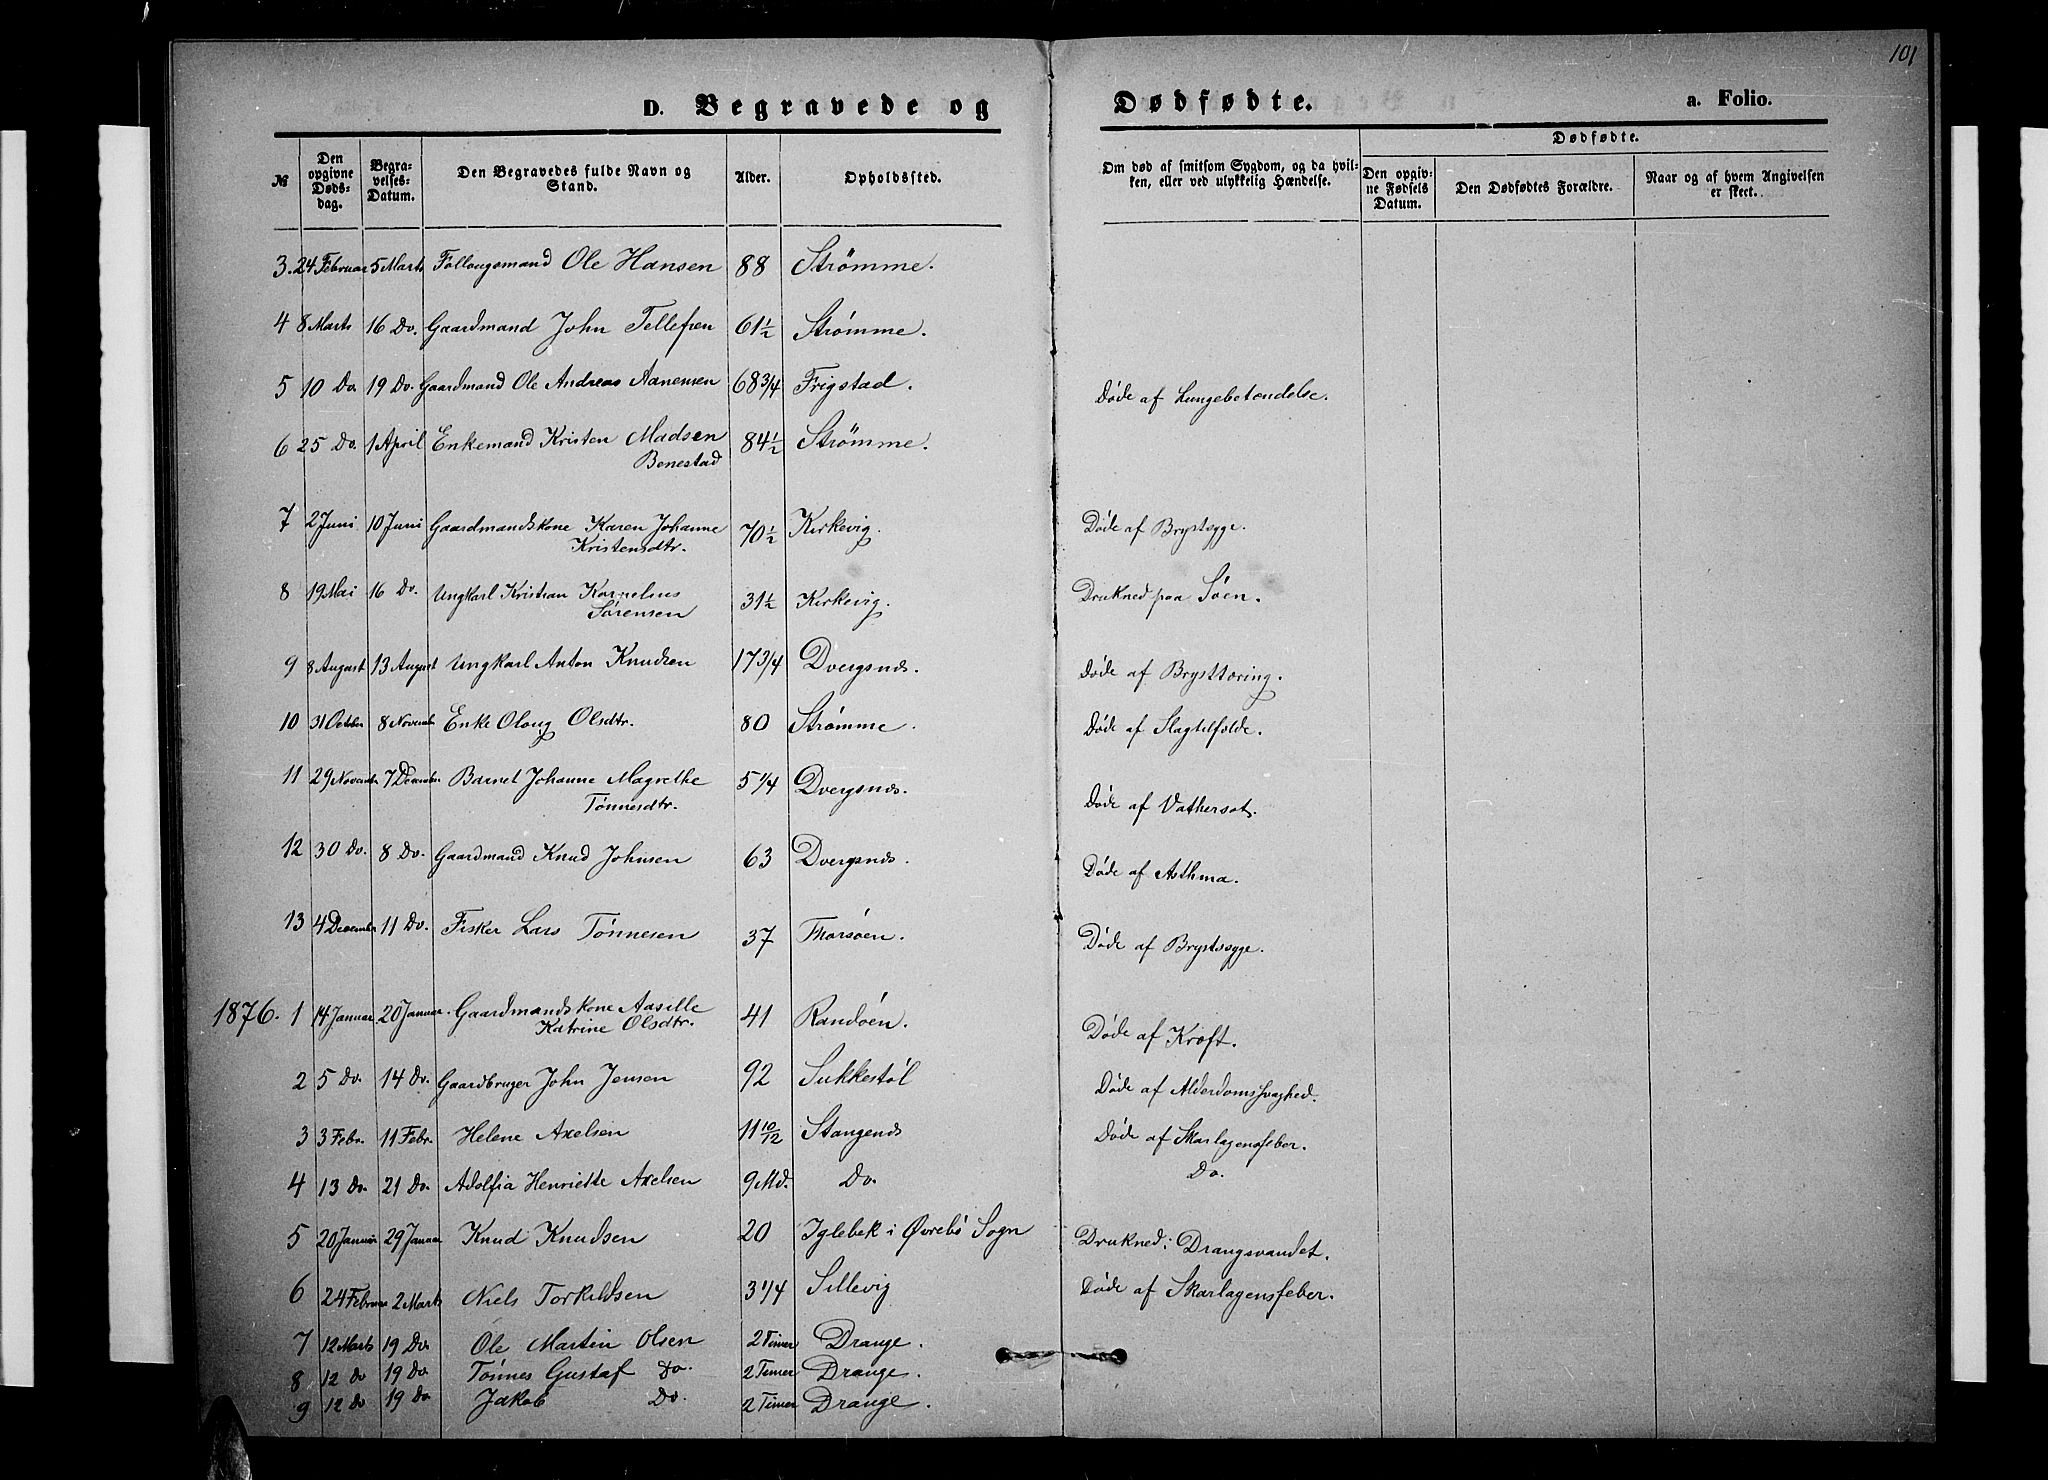 101
D. Begravede og Dødfødte. a. Folio.
№ | Den opgivne Døds-dag. | Begra-velses-Datum. | Den Begravedes fulde Navn og Stand. | Alder. | Opholdssted. | Om død af smitsom Sygdom, og da hvil-ken, eller ved ulykkelig Hændelse. | Dødfødte. | Den opgiv-ne Fødsels Datum. | Den Dødfødtes Forældre. | Naar og af hvem Angivelsen er skeet.
3. 24 Februar 5 Marts Follougsmand Ole Hansen 88 Strømme.
4 8 Marts 16 Do. Gaardmand John Tellefsen 61 1/2 Strømme.
5 10 Do. 19 Do. Gaardmand Ole Andreas Aanensen 68 3/4 Frigstad. Døde af Lungebetændelse.
6 25 Do. 1 April Enkemand Kristen Madsen 84 1/2 Strømme.
Benestad
7 2 Juni 10 Juni Gaardmandskone Karen Johanne 70 1/2 Kirkevig. Døde af Brystsyge.
Kristensdtr.
8 19 Mai 16 Do. Ungkarl Kristian Kornelius 31 1/2 Kirkevig. Drukned paa Søen.
Sørensen
9 8 August 13 August Ungkarl Anton Knudsen 17 3/4 Dvergsnæs. Døde af Brysttæring.
10 31 October 8 November Enke Oloug Olsdtr. 80 Strømme. Døde af Slagtilfælde.
11 29 November 7 December Barnet Johanne Magrethe 5 1/4 Dvergsnæs. Døde af Vathersot.
Tønnesdtr.
12 30 Do. 8 Do. Gaardmand Knud Johnsen 63 Dvergsnæs. Døde af Asthma.
13 4 December 11 Do. Fisker Lars Tønnesen 37 Tharsøen. Døde af Brystsyge.
1876. 1 14 Januar. 20 Januar. Gaardmandskone Aasille 41 Randøen. Døde af Kræft.
Katrine Olsdtr.
2 5 Do. 14 Do. Gaardbruger John Jensen 92 Sukkestøl Døde af Alderdomssvaghed.
3 3 Febr. 11 Febr. Helene Axelsen 11 10/12 Stangenæs Døde af Skarlagensfeber.
4 13 Do. 21 Do. Adolfia Henriette Axelsen 9 Md. Do. Do.
5 20 Januar 29 Januar Knud Knudsen 20 Iglebæk i Øvrebø Sogn Drukned i Drangsvandet.
6 24 Februar 2 Marts Niels Torkildsen 3 1/4 Sillevig Døde af Skarlagensfeber.
7 12 Marts 19 Do. Ole Martin Olsen 2 Timer Drange.
8 12 Do 19 Do Tønnes Gustaf Do. 2 Timer Drange.
9 12 Do 19 Do Jakob Do. 2 Timer Drange.